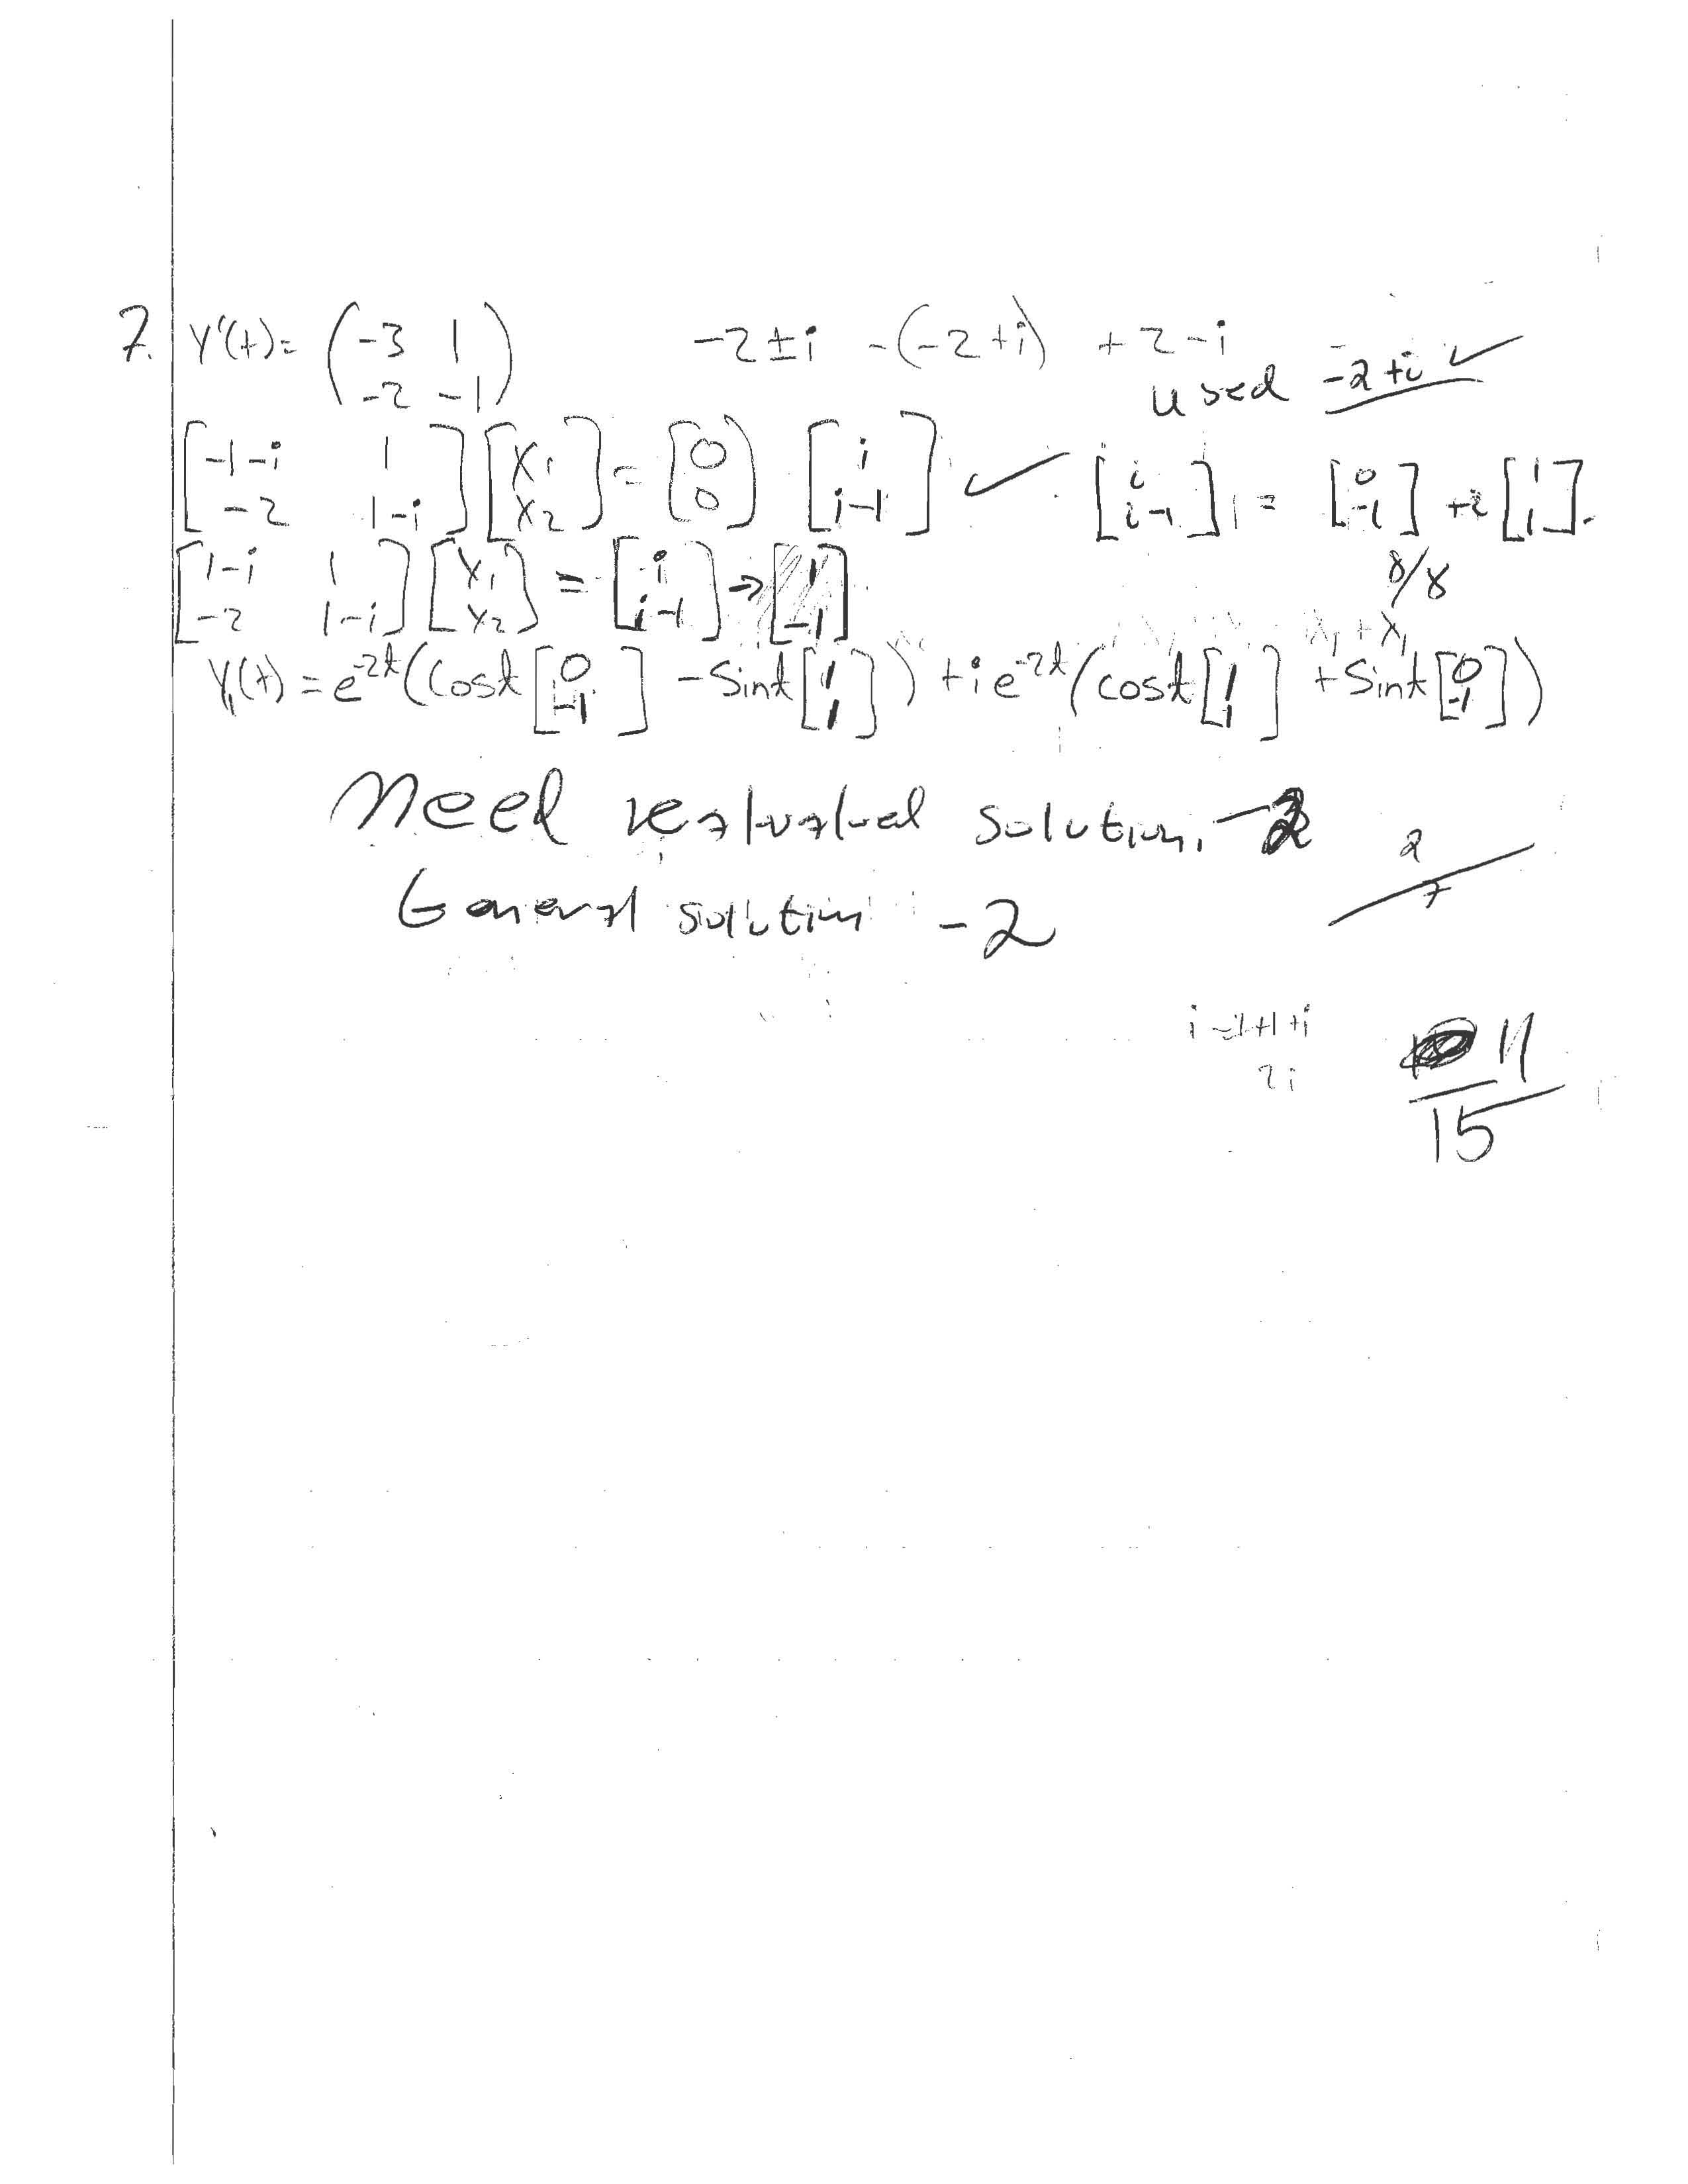 7. Y'(t)= (-3 1
-2 -1) -2±i -(-2+i) +2-i
used -2+i ✓
[-1-i 1
-2 1-i] [x₁
x₂] = [0
0) [i
i-1] ✓ [i
i-1] = [0
-1] +i [1
1].
[1-i 1
-2 1-i] [x₁
x₂] = [i
i-1] → [1
-1]
8/8
x₁ + x₁
Y₁(t) = e^-2t (cost [0
-1] - sint [1
1]) + i e^-2t (cost [1
1] + sint [0
-1])
Need real-valued solution, -2
General solution -2
2/7
i-1+1+i
2i
11
15